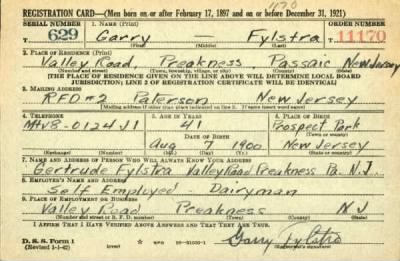 1170
REGISTRATION CARD—(Men born on or after February 17, 1897 and on or before December 31, 1921)
SERIAL NUMBER 629 1. NAME (Print) Garry Fylstra ORDER NUMBER 11170
(First) (Middle) (Last)
2. PLACE OF RESIDENCE (Print)
Valley Road, Preakness Passaic New Jersey
(Number and street) (Town, township, village, or city) (County) (State)
[THE PLACE OF RESIDENCE GIVEN ON THE LINE ABOVE WILL DETERMINE LOCAL BOARD
JURISDICTION; LINE 2 OF REGISTRATION CERTIFICATE WILL BE IDENTICAL]
3. MAILING ADDRESS
RFD #2 Paterson New Jersey
[Mailing address if other than place indicated on line 2. If same insert word same]
4. TELEPHONE 5. AGE IN YEARS 6. PLACE OF BIRTH
Mtv8-0124J1 41 Prospect Park
DATE OF BIRTH (Town or county)
Aug 7 1900 New Jersey
(Exchange) (Number) (Mo.) (Day) (Yr.) (State or country)
7. NAME AND ADDRESS OF PERSON WHO WILL ALWAYS KNOW YOUR ADDRESS
Gertrude Fylstra Valley Road Preakness Pa. N.J.
8. EMPLOYER'S NAME AND ADDRESS
Self Employed - Dairyman
9. PLACE OF EMPLOYMENT OR BUSINESS
Valley Road Preakness NJ
(Number and street or R. F. D. number) (Town) (County) (State)
I AFFIRM THAT I HAVE VERIFIED ABOVE ANSWERS AND THAT THEY ARE TRUE.
D. S. S. Form 1
(Revised 1-1-42) (over) Garry Fylstra